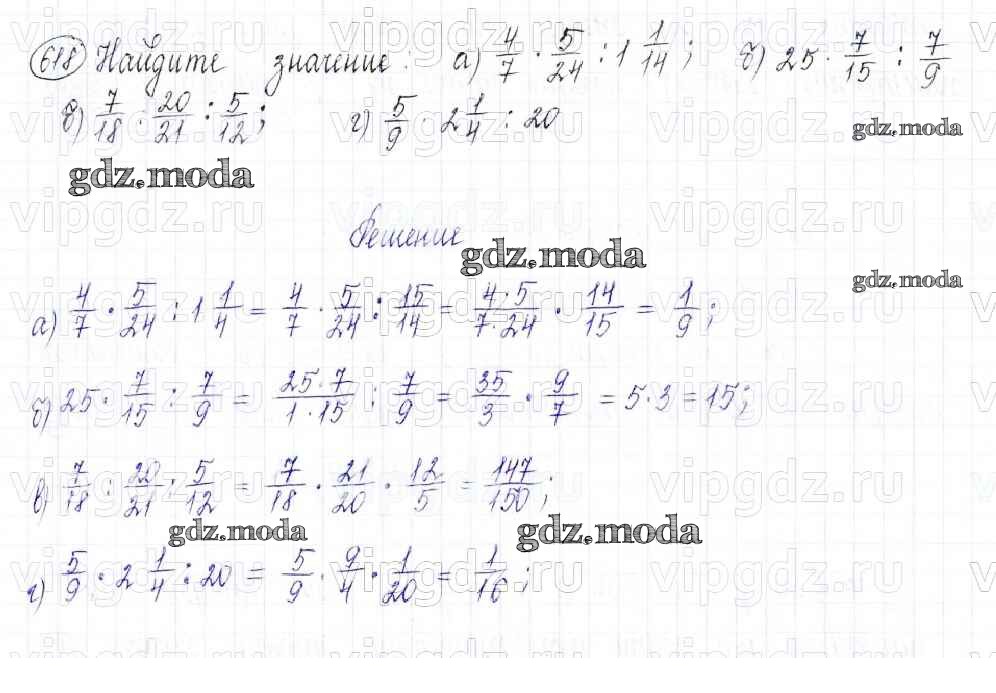 618 Найдите значение: а) 4/7 · 5/24 : 1 1/14; б) 25 · 7/15 : 7/9
в) 7/18 : 20/21 : 5/12; г) 5/9 · 2 1/4 : 20
gdz.moda
gdz.moda
Решение
gdz.moda
gdz.moda
а) 4/7 · 5/24 : 1 1/4 = 4/7 · 5/24 : 15/14 = 4·5/7·24 · 14/15 = 1/9;
б) 25 · 7/15 : 7/9 = 25·7/1·15 : 7/9 = 35/3 · 9/7 = 5·3 = 15;
в) 7/18 : 20/21 : 5/12 = 7/18 · 21/20 · 12/5 = 147/150;
gdz.moda
gdz.moda
г) 5/9 · 2 1/4 : 20 = 5/9 · 9/4 · 1/20 = 1/16;
vipgdz.ru